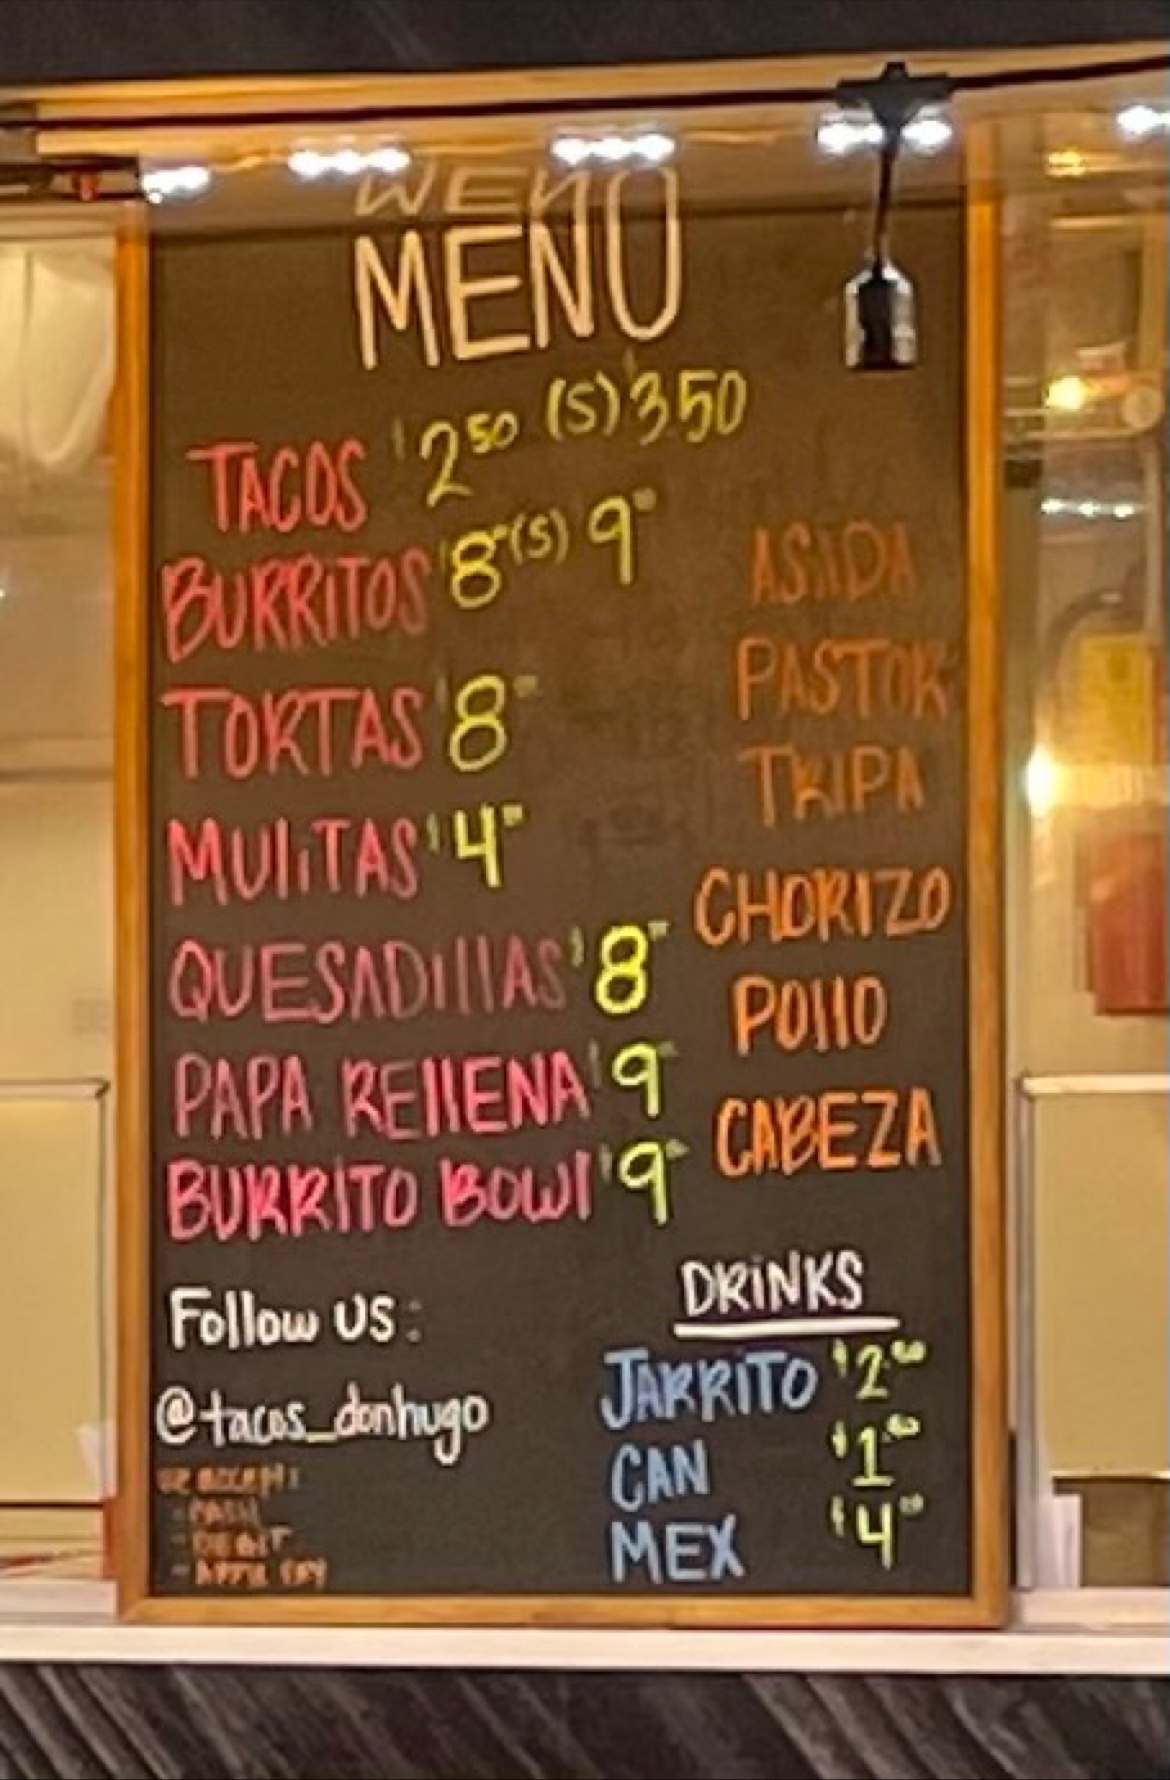 MENU
TACOS $2.50 (S) $3.50
BURRITOS $8.00 (S) 9.00
TORTAS $8.00
MULiTAS $4.00
QUESADillAS $8.00
PAPA REllENA $9.00
BURRITO BOWl $9.00
ASADA
PASTOR
TRIPA
CHORIZO
POllO
CABEZA
Follow US:
@tacos_donhugo
WE ACCEPT:
- CASH
- DEBIT
- APPLE PAY
DRiNKS
JARRITO $2.50
CAN $1.50
MEX $4.00